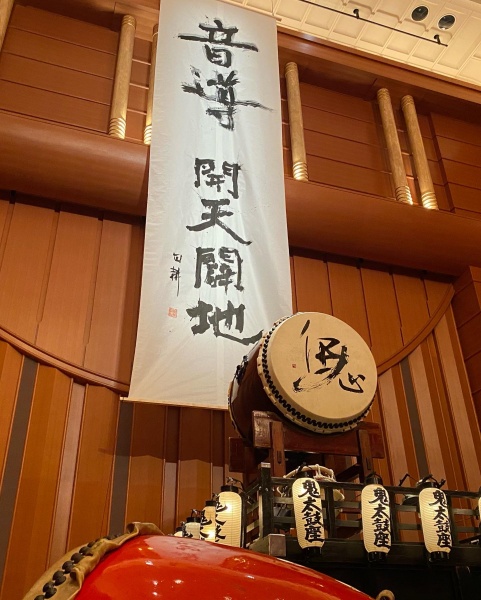 音導
開天闢地
田耕
鬼太鼓座
鬼太鼓座
鬼太鼓座